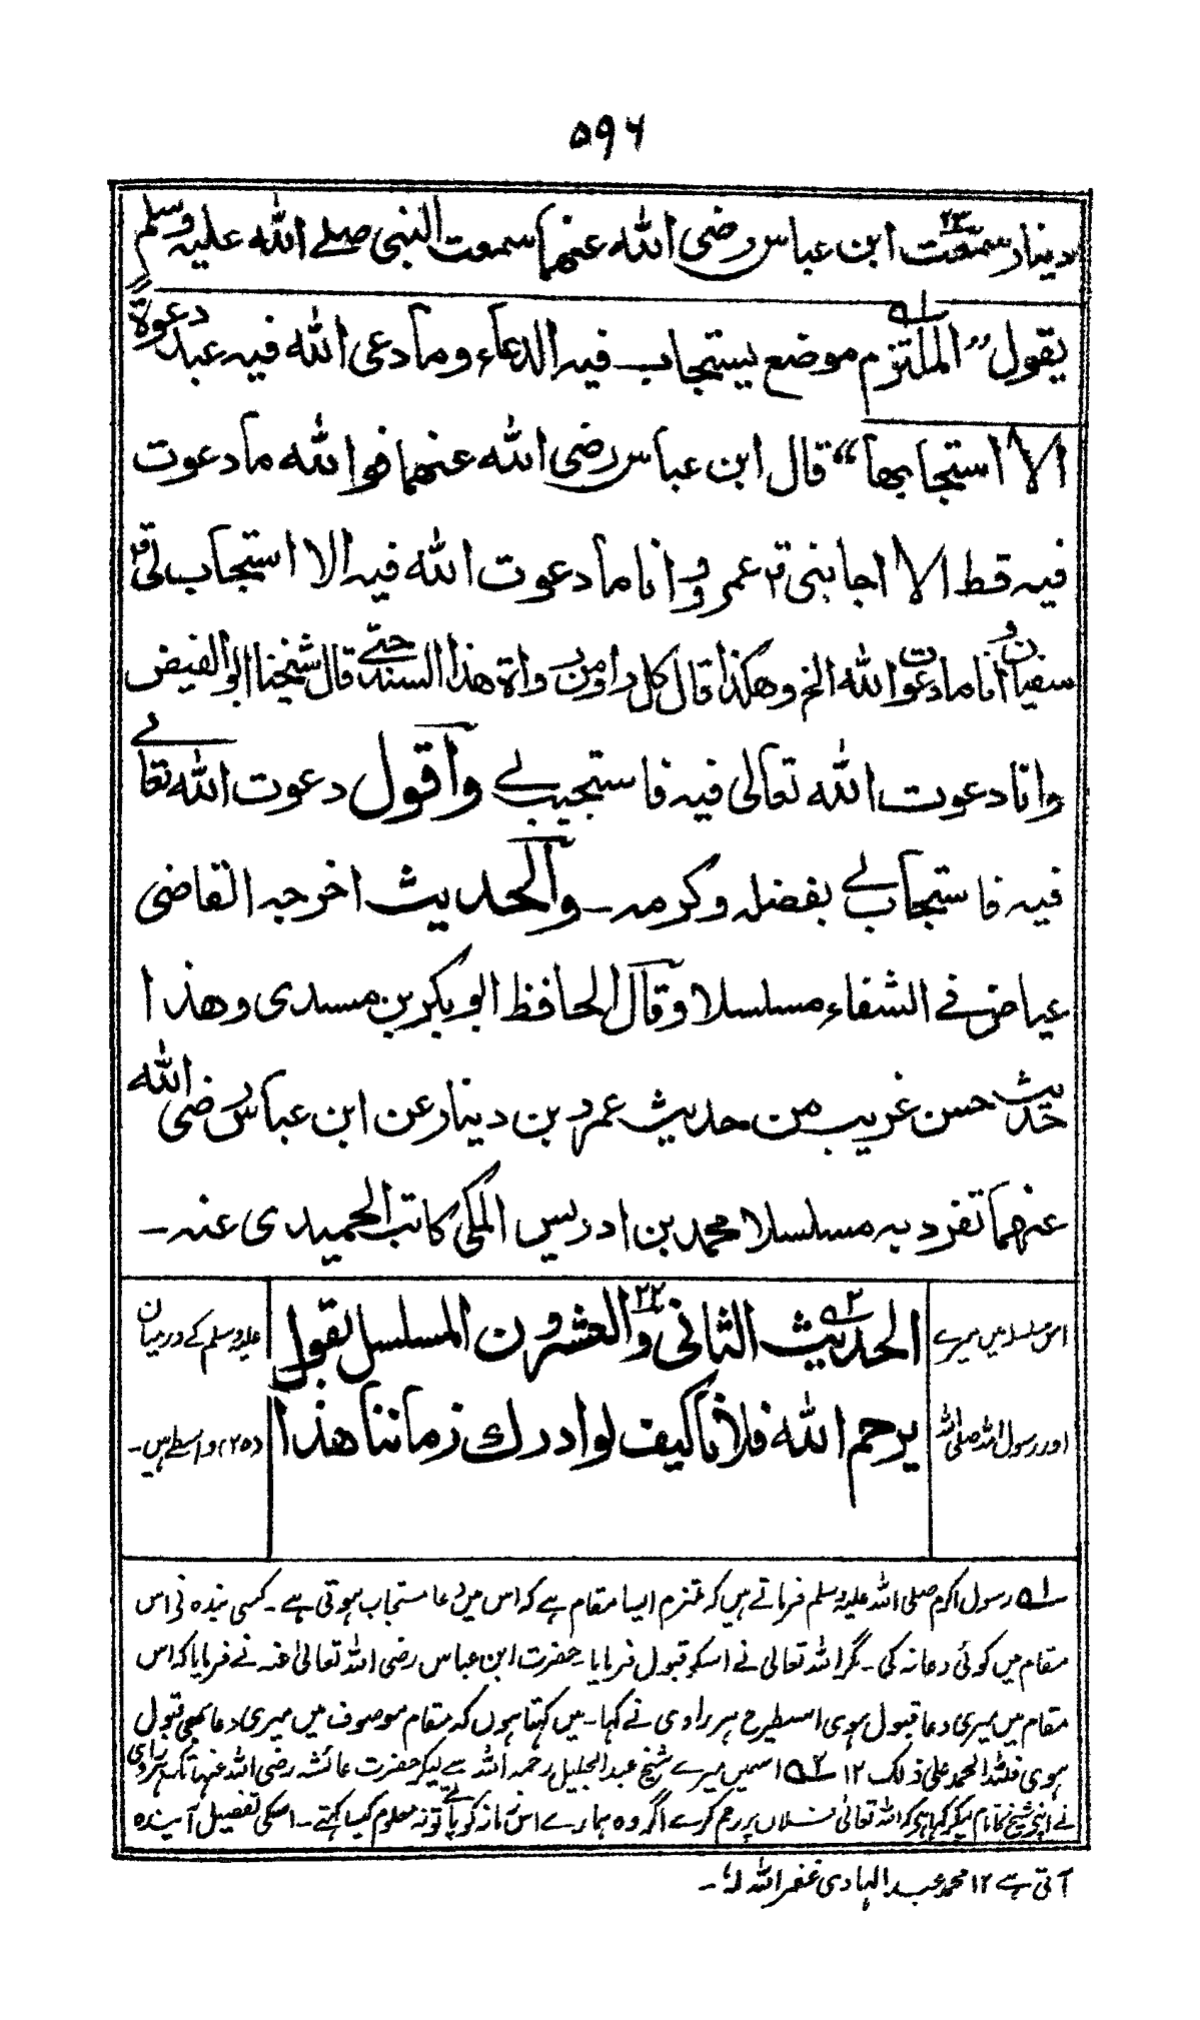 ۵۹۶
دینار سمعت ۲۳ ابن عباس رضی الله عنهما سمعت النبی صلے الله علیہ وسلم
یقول ”الملتزم ۱ے موضع یستجاب فیہ الدعاء وما دعی الله فیہ عبد دعوۃً
الا استجابها“ قال ابن عباس رضی الله عنهما فو الله ما دعوت
فیہ قط الا اجابنی قال عمرو وانا ما دعوت الله فیہ الا استجاب لی قال
سفیان وانا ما دعوت الله الخ وهكذا قال كل راو من رواة هذا السند حتے قال شیخنا ابو الفیض
وانا دعوت الله تعالی فیہ فاستجیب لے واقول دعوت الله تعالے
فیہ فاستجاب لے بفضلہ وکرمہ ـ والحدیث اخرجہ القاضی
عیاض فے الشفاء مسلسلا وقال الحافظ ابو بکر بن مسدی وهذا
حدیث حسن غریب من حدیث عمرو بن دینار عن ابن عباس رضی الله
عنهما تفرد بہ مسلسلا محمد بن ادریس المکی کاتب الحمیدی عنہ ـ
الحدیث ۲ے الثانی والعشرون ۲۲ المسلسل بقول
یرحم الله فلانا کیف لو ادرک زماننا هذا
اس سلسلہ میں میرے
اور رسول الله صلی الله
علیہ وسلم کے درمیان
(۲۵) واسطے ہیں۔
۱ے رسول اکرم صلی الله علیہ وسلم فرماتے ہیں کہ ملتزم ایسا مقام ہے کہ اس میں دعا مستجاب ہوتی ہے۔ کسی بندہ نی اس
مقام میں کوئی دعا نہ کی۔ مگر الله تعالی نے اسکو قبول فرمایا۔ حضرت ابن عباس رضی الله تعالیٰ عنہ نے فرمایا کہ اس
مقام میں میری دعا قبول ہوی اسیطرح ہر راوی نے کہا۔ میں کہتا ہوں کہ مقام موصوف میں میری دعا بھی قبول
ہوی فلله الحمد علی ذلک ۱۲ ۲ے اسمیں میرے شیخ عبد الجلیل رحمہ الله سے لیکر حضرت عائشہ رضی الله عنہا تک ہر راوی
نے اپنی شیخ کا نام لیکر کہا ہی کہ الله تعالیٰ فلاں پر رحم کرے اگر وہ ہمارے اس زمانہ کو پاتے تو نہ معلوم کیا کہتے۔ اسکی تفصیل آیندہ
آتی ہے ۱۲ محمد عبد الہادی غفر الله لہٗ۔